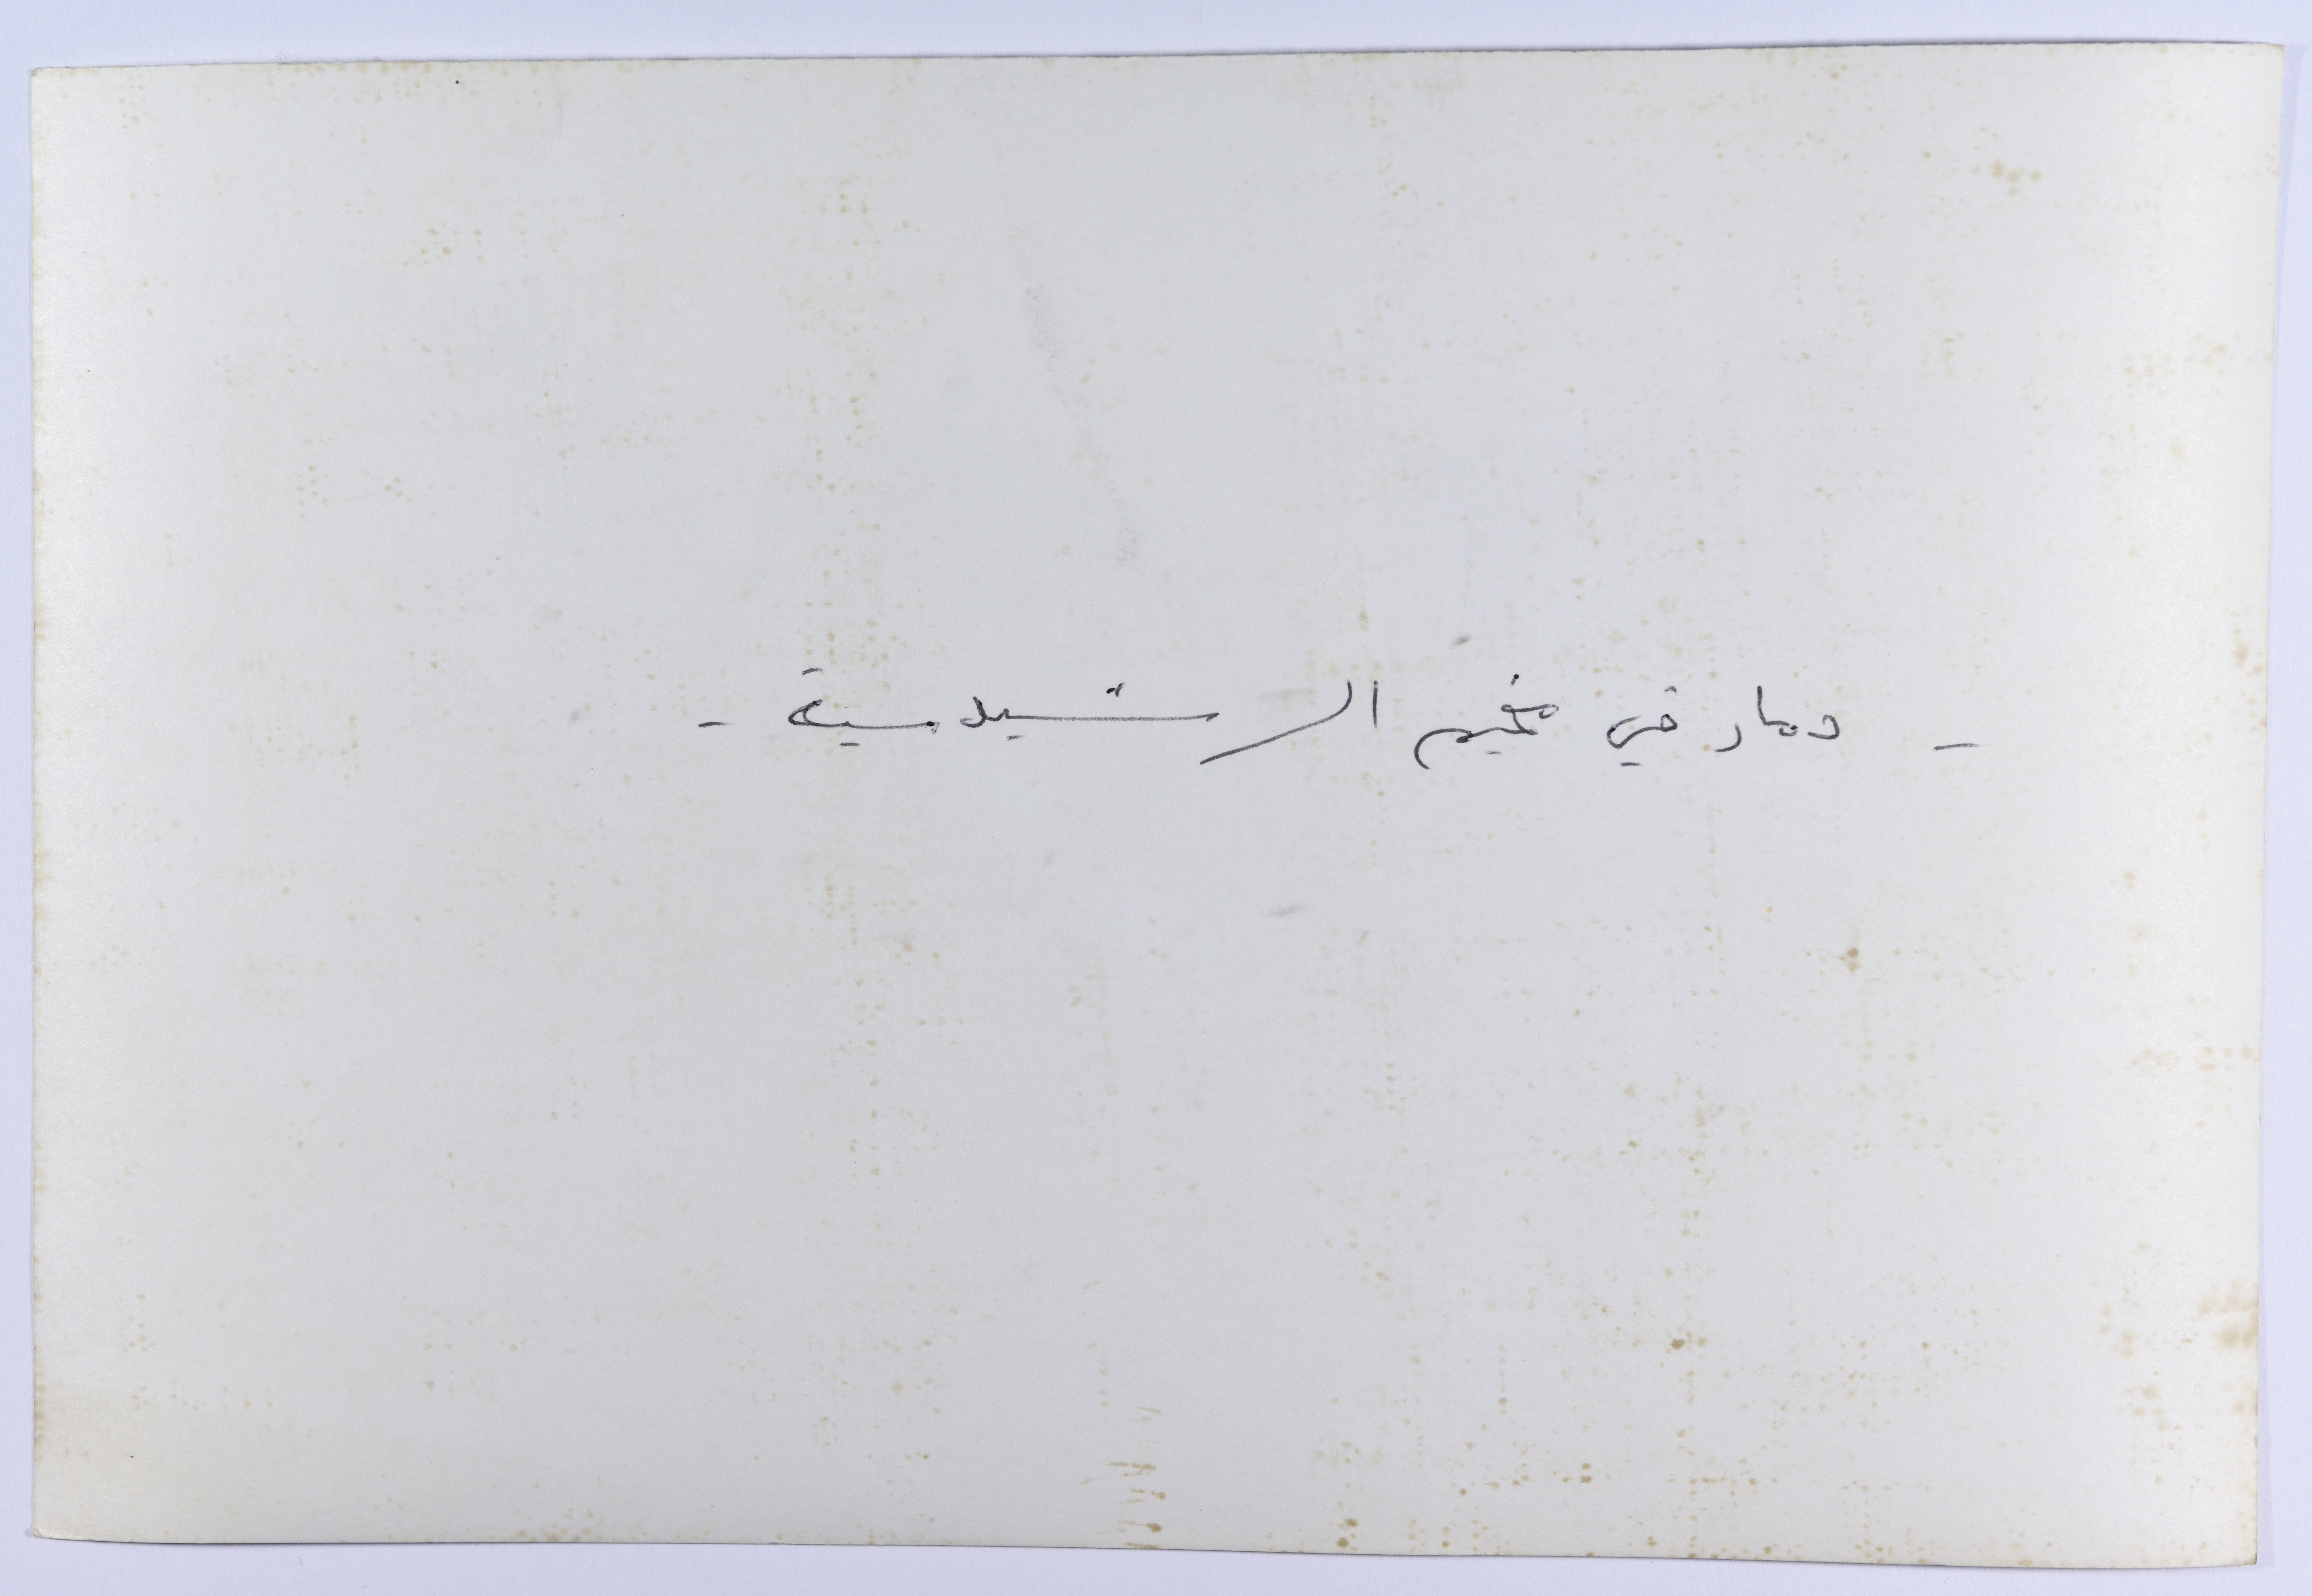 - دمار في مخيم الرشيدية -